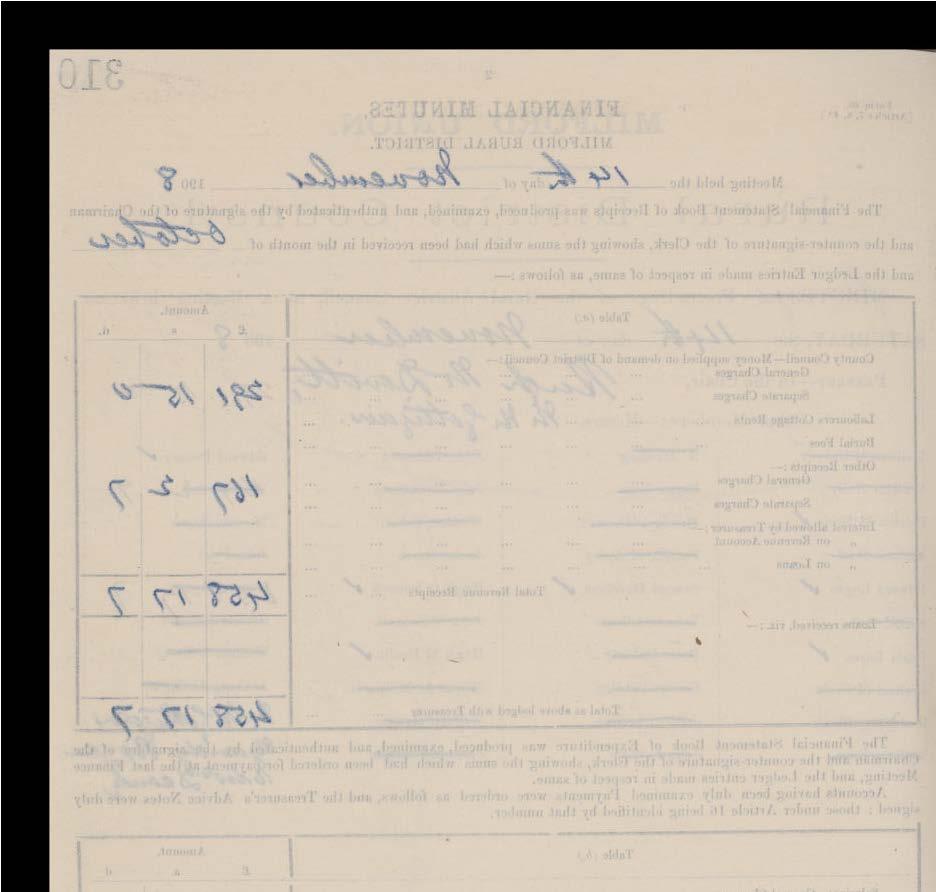 310
2
Form 40.
[Articles 7, 8, &c.]
FINANCIAL MINUTES.
MILFORD RURAL DISTRICT.
Meeting held the 14th day of November 1908
The Financial Statement Book of Receipts was produced, examined, and authenticated by the signature of the Chairman
and the counter-signature of the Clerk, showing the sums which had been received in the month of October
and the Ledger Entries made in respect of same, as follows :—
Table (a.) Amount.
£ s. d.
County Council—Money supplied on demand of District Council:—
General Charges ... 291 15 0
Separate Charges ...
Labourers Cottage Rents ...
Burial Fees ...
Other Receipts :—
General Charges ... 167 2 7
Separate Charges ...
Interest allowed by Treasurer :—
„ on Revenue Account ...
„ on Loans ...
Total Revenue Receipts ... 458 17 7
Loans received, viz. :—
Total as above lodged with Treasurer ... 458 17 7
The Financial Statement Book of Expenditure was produced, examined, and authenticated by the signature of the
Chairman and the counter-signature of the Clerk, showing the sums which had been ordered for payment at the last Finance
Meeting, and the Ledger entries made in respect of same.
Accounts having been duly examined Payments were ordered as follows, and the Treasurer's Advice Notes were duly
signed ; those under Article 16 being identified by that number.
Table (b.) Amount.
£ s. d.